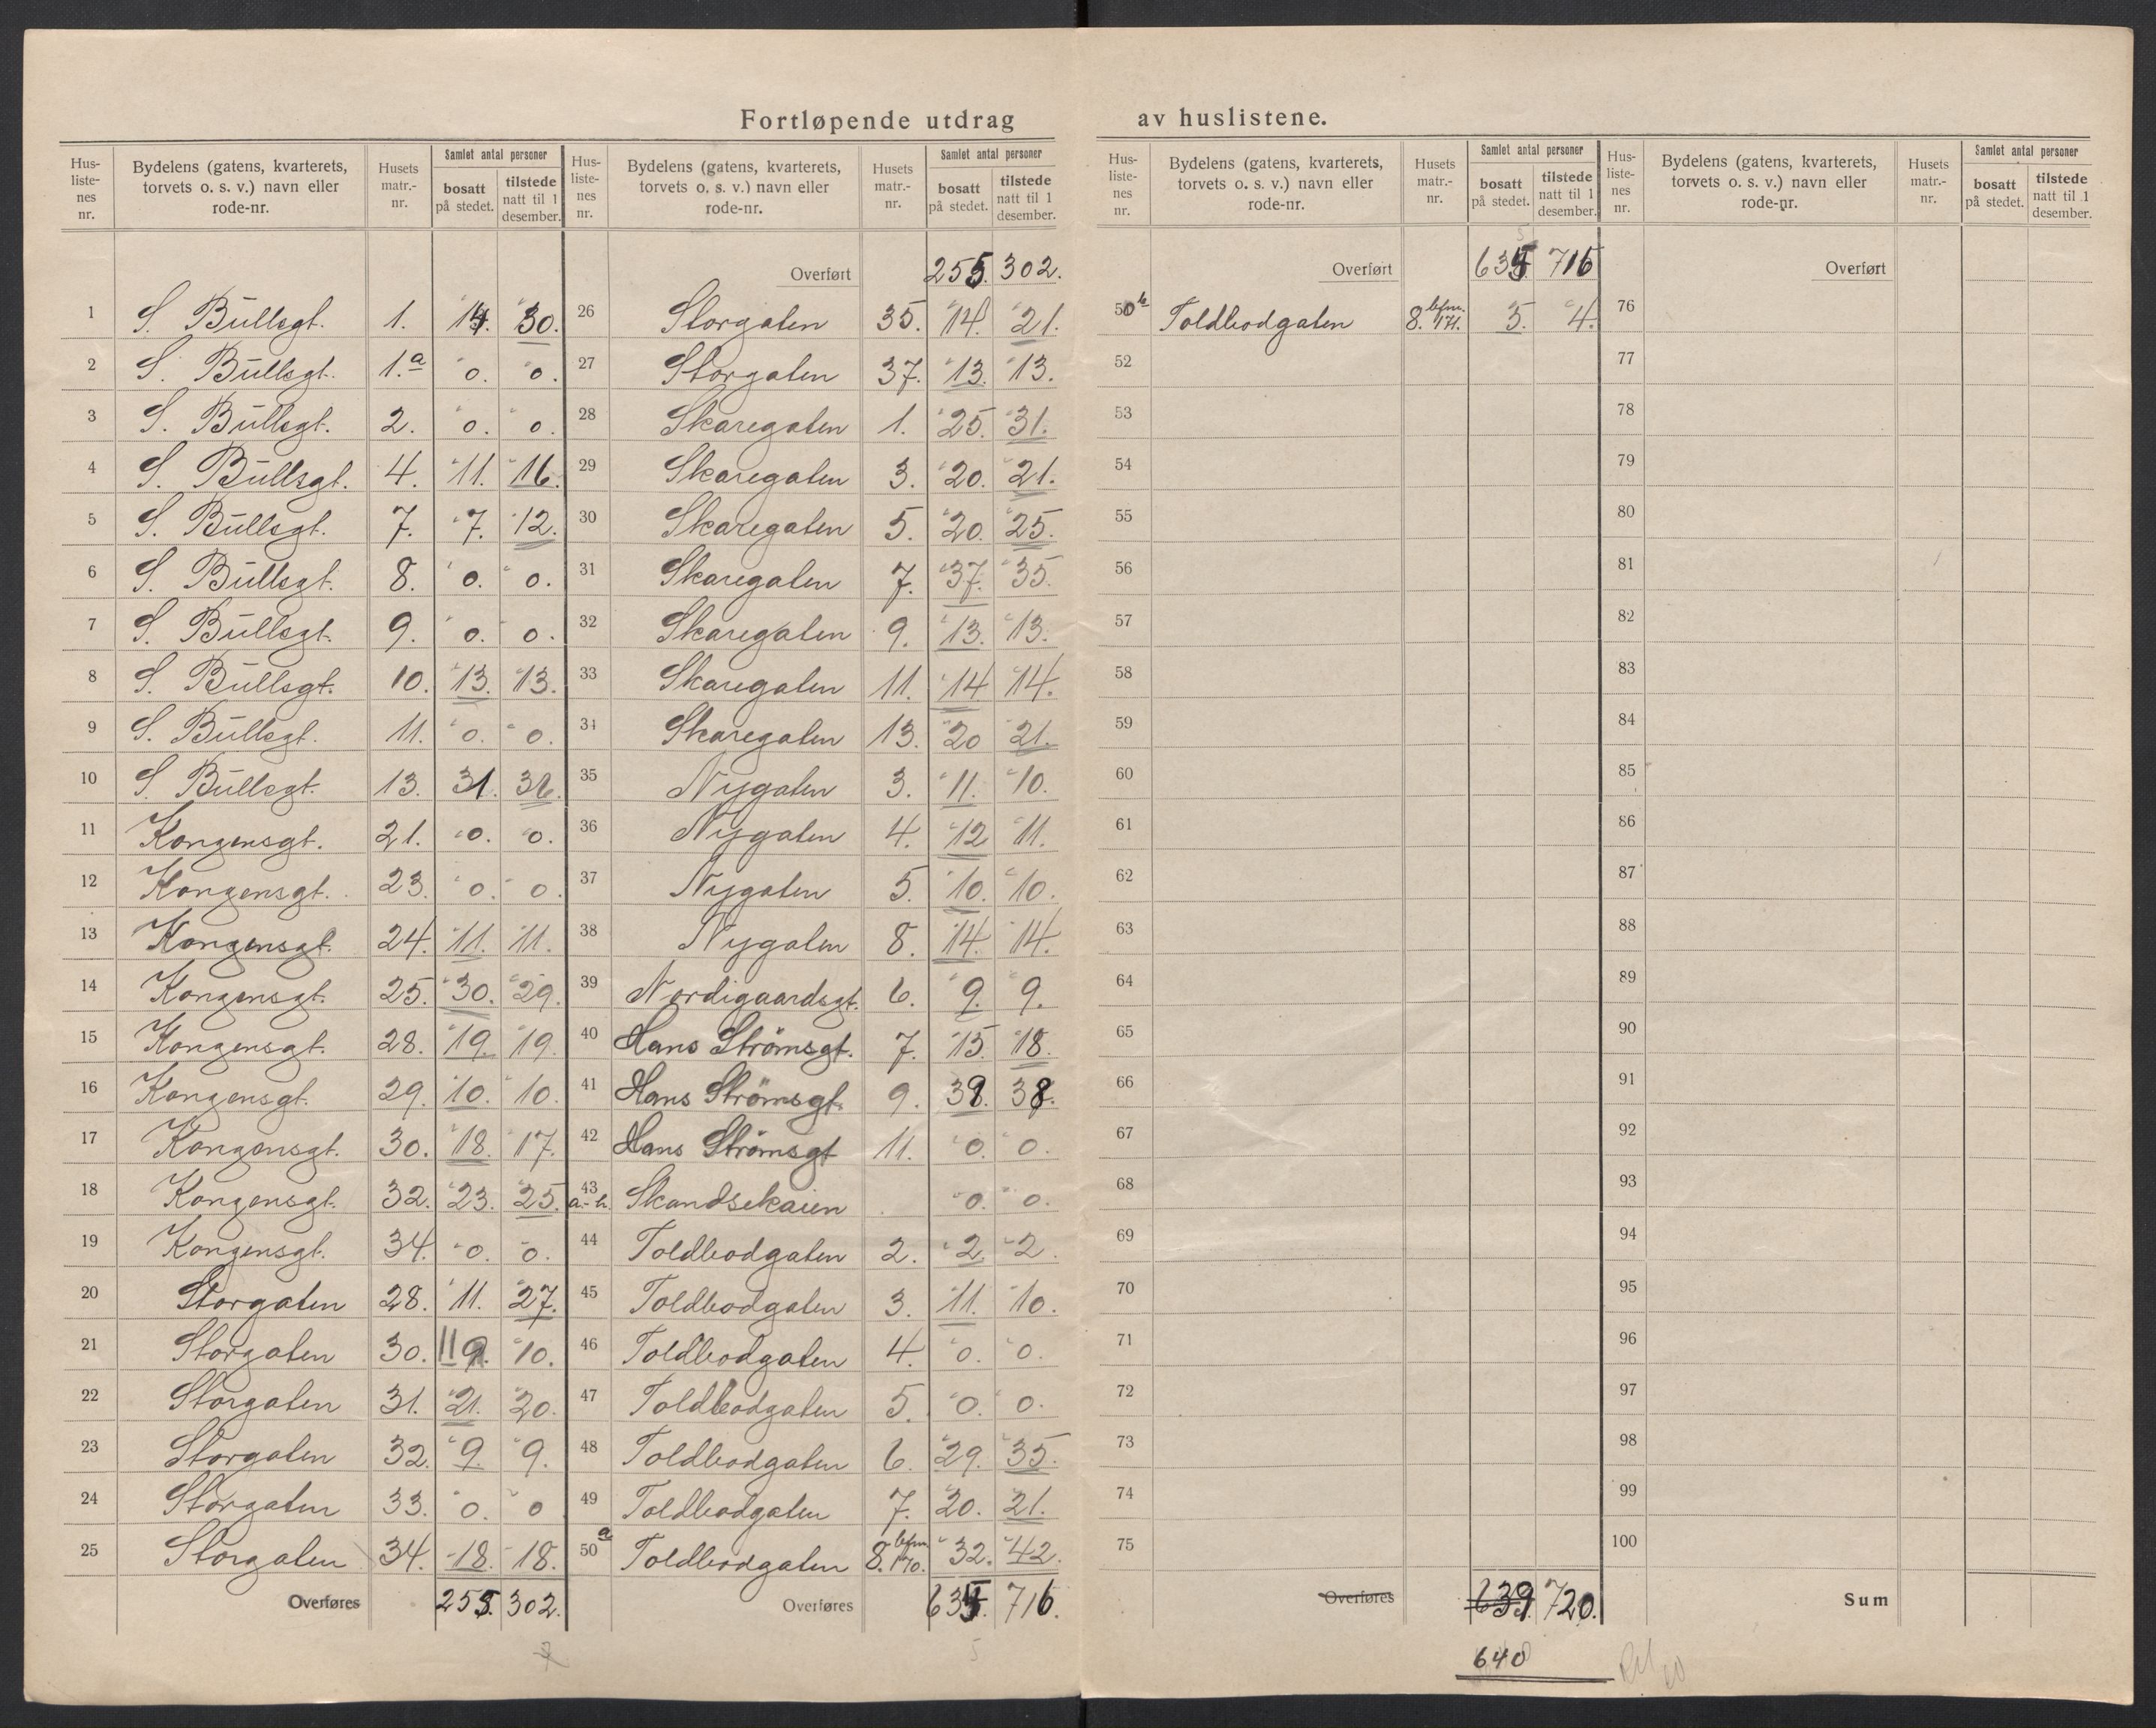 Fortløpende utdrag av huslistene.
Hus-listenes nr. | Bydelens (gatens, kvarterets, torvets o. s. v.) navn eller rode-nr. | Husets matr.-nr. | Samlet antal personer: bosatt på stedet. | tilstede natt til 1 desember.
1 S. Bullsgt. 1. 14. 30.
2 S. Bullsgt. 1.a 0. 0.
3 S. Bullsgt. 2. 0. 0.
4 S. Bullsgt. 4. 11. 16.
5 S. Bullsgt. 7. 7. 12.
6 S. Bullsgt. 8. 0. 0.
7 S. Bullsgt. 9. 0. 0.
8 S. Bullsgt. 10. 13. 13.
9 S. Bullsgt. 11. 0. 0.
10 S. Bullsgt. 13. 31. 36.
11 Kongensgt. 21. 0. 0.
12 Kongensgt. 23. 0. 0.
13 Kongensgt. 24. 11. 11.
14 Kongensgt. 25. 30. 29.
15 Kongensgt. 28. 19. 19.
16 Kongensgt. 29. 10. 10.
17 Kongensgt. 30. 18. 17.
18 Kongensgt. 32. 23. 25.
19 Kongensgt. 34. 0. 0.
20 Storgaten 28. 11. 27.
21 Storgaten 30. 9. 10.
22 Storgaten 31. 21. 20.
23 Storgaten 32. 9. 9.
24 Storgaten 33. 0. 0
25 Storgaten 34. 18. 18.
Overføres 255. 302.
Hus-listenes nr. | Bydelens (gatens, kvarterets, torvets o. s. v.) navn eller rode-nr. | Husets matr.-nr. | Samlet antal personer: bosatt på stedet. | tilstede natt til 1 desember.
Overført 255. 302.
26 Storgaten 35. 14. 21.
27 Storgaten 37. 13. 13.
28 Skaregaten 1. 25. 31.
29 Skaregaten 3. 20. 21.
30 Skaregaten 5. 20. 25.
31 Skaregaten 7. 37. 35.
32 Skaregaten 9. 13. 13.
33 Skaregaten 11. 14 14.
34 Skaregaten 13. 20 21.
35 Nygaten 3. 11. 10.
36 Nygaten 4. 12 11.
37 Nygaten 5. 10. 10.
38 Nygaten 8. 14. 14.
39 Nordigaardsgt. 6. 9. 9.
40 Hans Strömsgt. 7. 15. 18.
41 Hans Strömsgt. 9. 39. 38.
42 Hans Strömsgt 11. 0. 0.
43 a.-h. Skandsekaien 0. 0.
44 Toldbodgaten 2. 2. 2.
45 Toldbodgaten 3. 11. 10.
46 Toldbodgaten 4. 0. 0.
47 Toldbodgaten 5. 0. 0.
48 Toldbodgaten 6. 29. 35.
49 Toldbodgaten 7. 20. 21.
50a Toldbodgaten 8. 170. 32. 42.
Overføres 635. 716.
Hus-listenes nr. | Bydelens (gatens, kvarterets, torvets o. s. v.) navn eller rode-nr. | Husets matr.-nr. | Samlet antal personer: bosatt på stedet. | tilstede natt til 1 desember.
Overført 635. 716
50b Toldbodgaten 8. 171. 5. 4.
52
53
54
55
56
57
58
59
60
61
62
63
64
65
66
67
68
69
70
71
72
73
74
75
Overføres 639. 720.
640
Hus-listenes nr. | Bydelens (gatens, kvarterets, torvets o. s. v.) navn eller rode-nr. | Husets matr.-nr. | Samlet antal personer: bosatt på stedet. | tilstede natt til 1 desember.
Overført
76
77
78
79
80
81
82
83
84
85
86
87
88
89
90
91
92
93
94
95
96
97
98
99
100
Sum